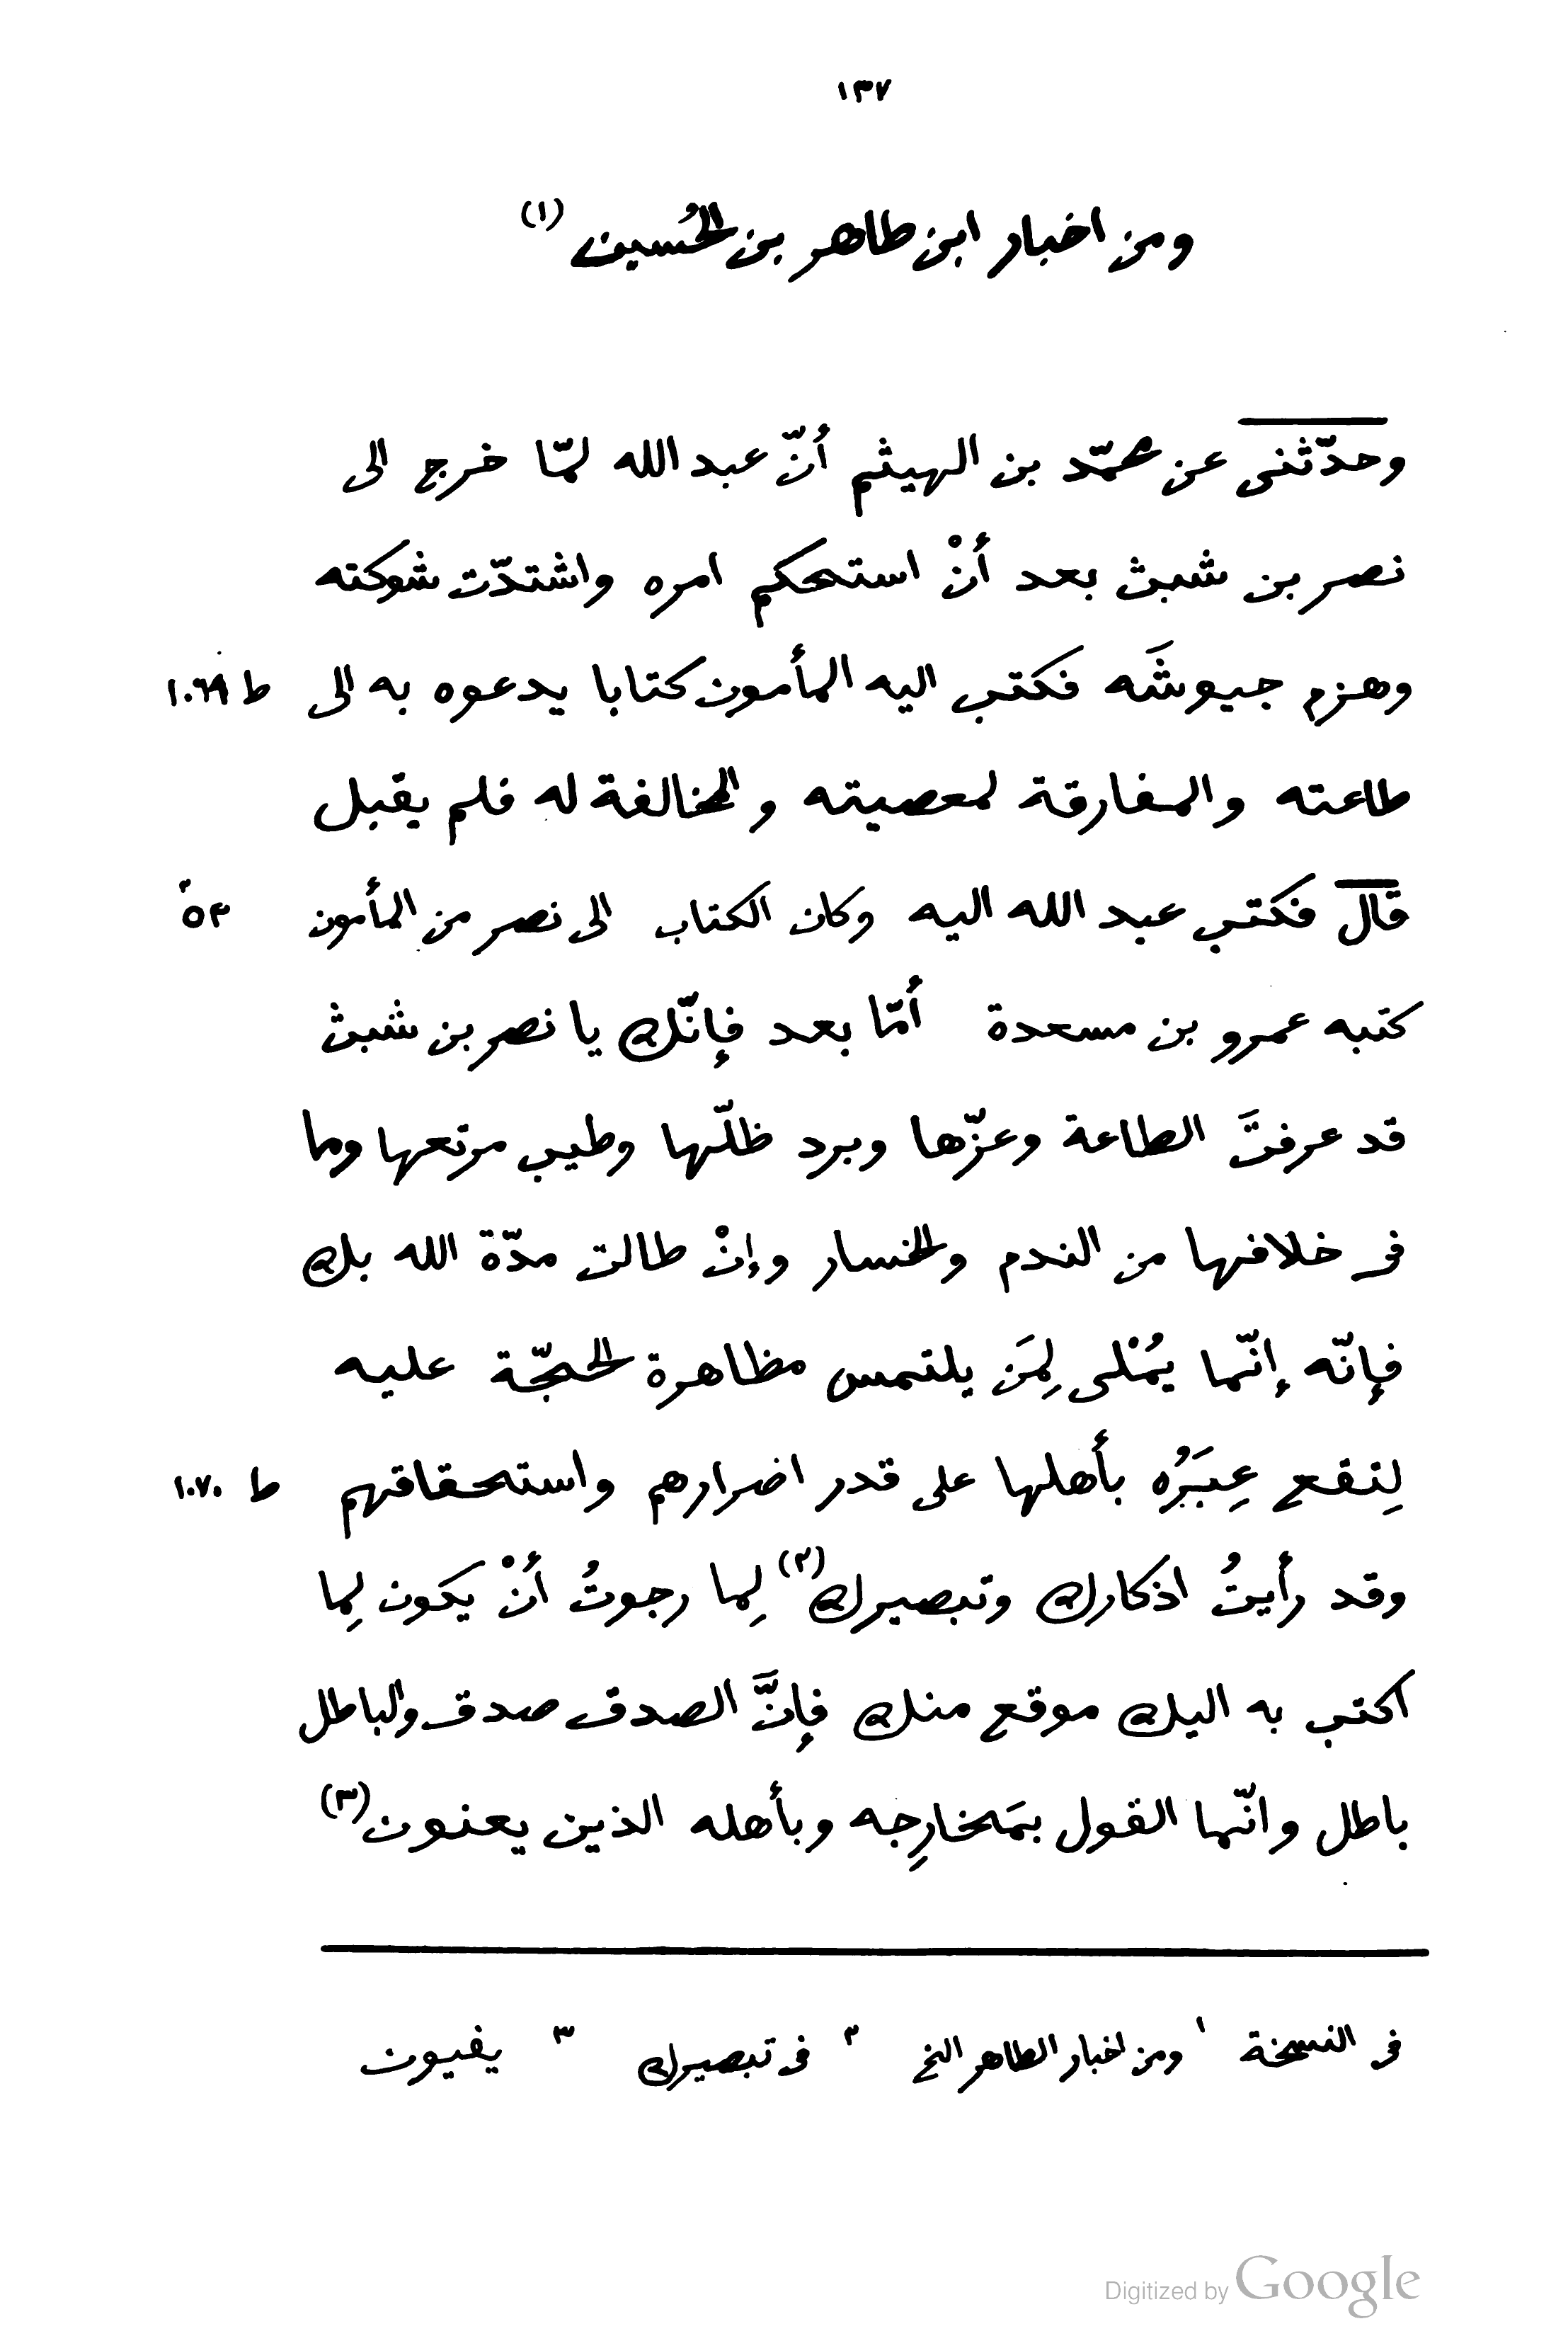 ١٣٧
ومن اخبار ابن طاهر بن الحُسين (١)
وحدّثنى عن محمّد بن الهيثم أنّ عبد الله لمّا خرج الى
نصر بن شبث بعد أنْ استحكم امره واشتدّت شوكته
وهزم جيوشَه فكتب اليه المأمون كتابا يدعوه به الى ط ١٠٦٩
طاعته والمفارقة لمعصيته والمخالفة له فلم يقبل
قال فكتب عبد الله اليه وكان الكتاب الى نصر من المأمون
كتبه عمرو بن مسعدة أمّا بعد فإنّك يا نصر بن شبث
قد عرفتَ الطاعة وعزّها وبرد ظلّها وطيب مرتعها وما
فى خلافها من الندم والخسار وإنْ طالت مدّة الله بك
فإنّه إنّما يُمْلى لِمَن يلتمس مظاهرة الحجّة عليه
لِتقع عِبَرُه بأهلها على قدر اضرارهم واستحقاقهم ط ١٠٧٠
وقد رأيتُ اذكارك وتبصيرك (٢) لِما رجوتُ أنْ يكون لِما
اكتب به اليك موقع منك فإنَّ الصدق صدق والباطل
باطل وانّما القول بمَخارِجِه وبأهله الذين يعنون (٣)
فى النسخة ١ ومن اخبار الطاهر الخ ٢ فى تبصيرك ٣ يفيون
Digitized by Google